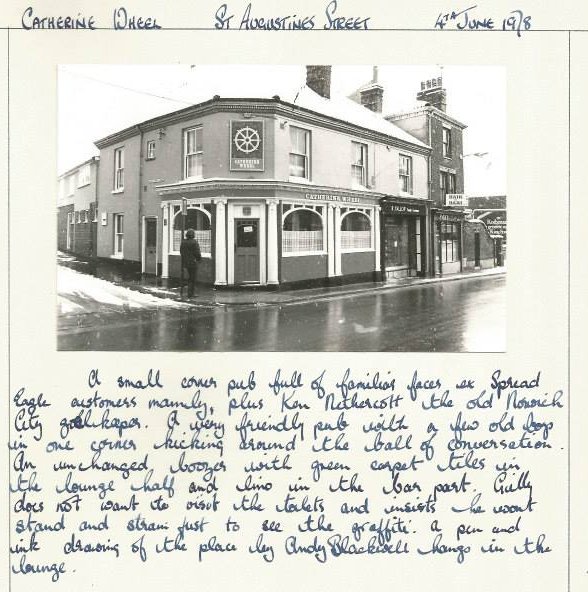 CATHERINE WHEEL ST AUGUSTINES STREET 4TH JUNE 1978
CATHERINE
WHEEL
CATHERINE WHEEL
A small corner pub full of familiar faces ex Spread
Eagle customers mainly, plus Ken Nethercott the old Norwich
City goalkeeper. A very friendly pub with a few old boys
in one corner kicking around the ball of conversation.
An unchanged boozer with green carpet tiles in
the lounge half and lino in the bar part. Gully
does not want to visit the toilets and insists he wont
stand and strain just to see the graffite. A pen and
ink drawing of the place by Andy Blackwell hangs in the
lounge.